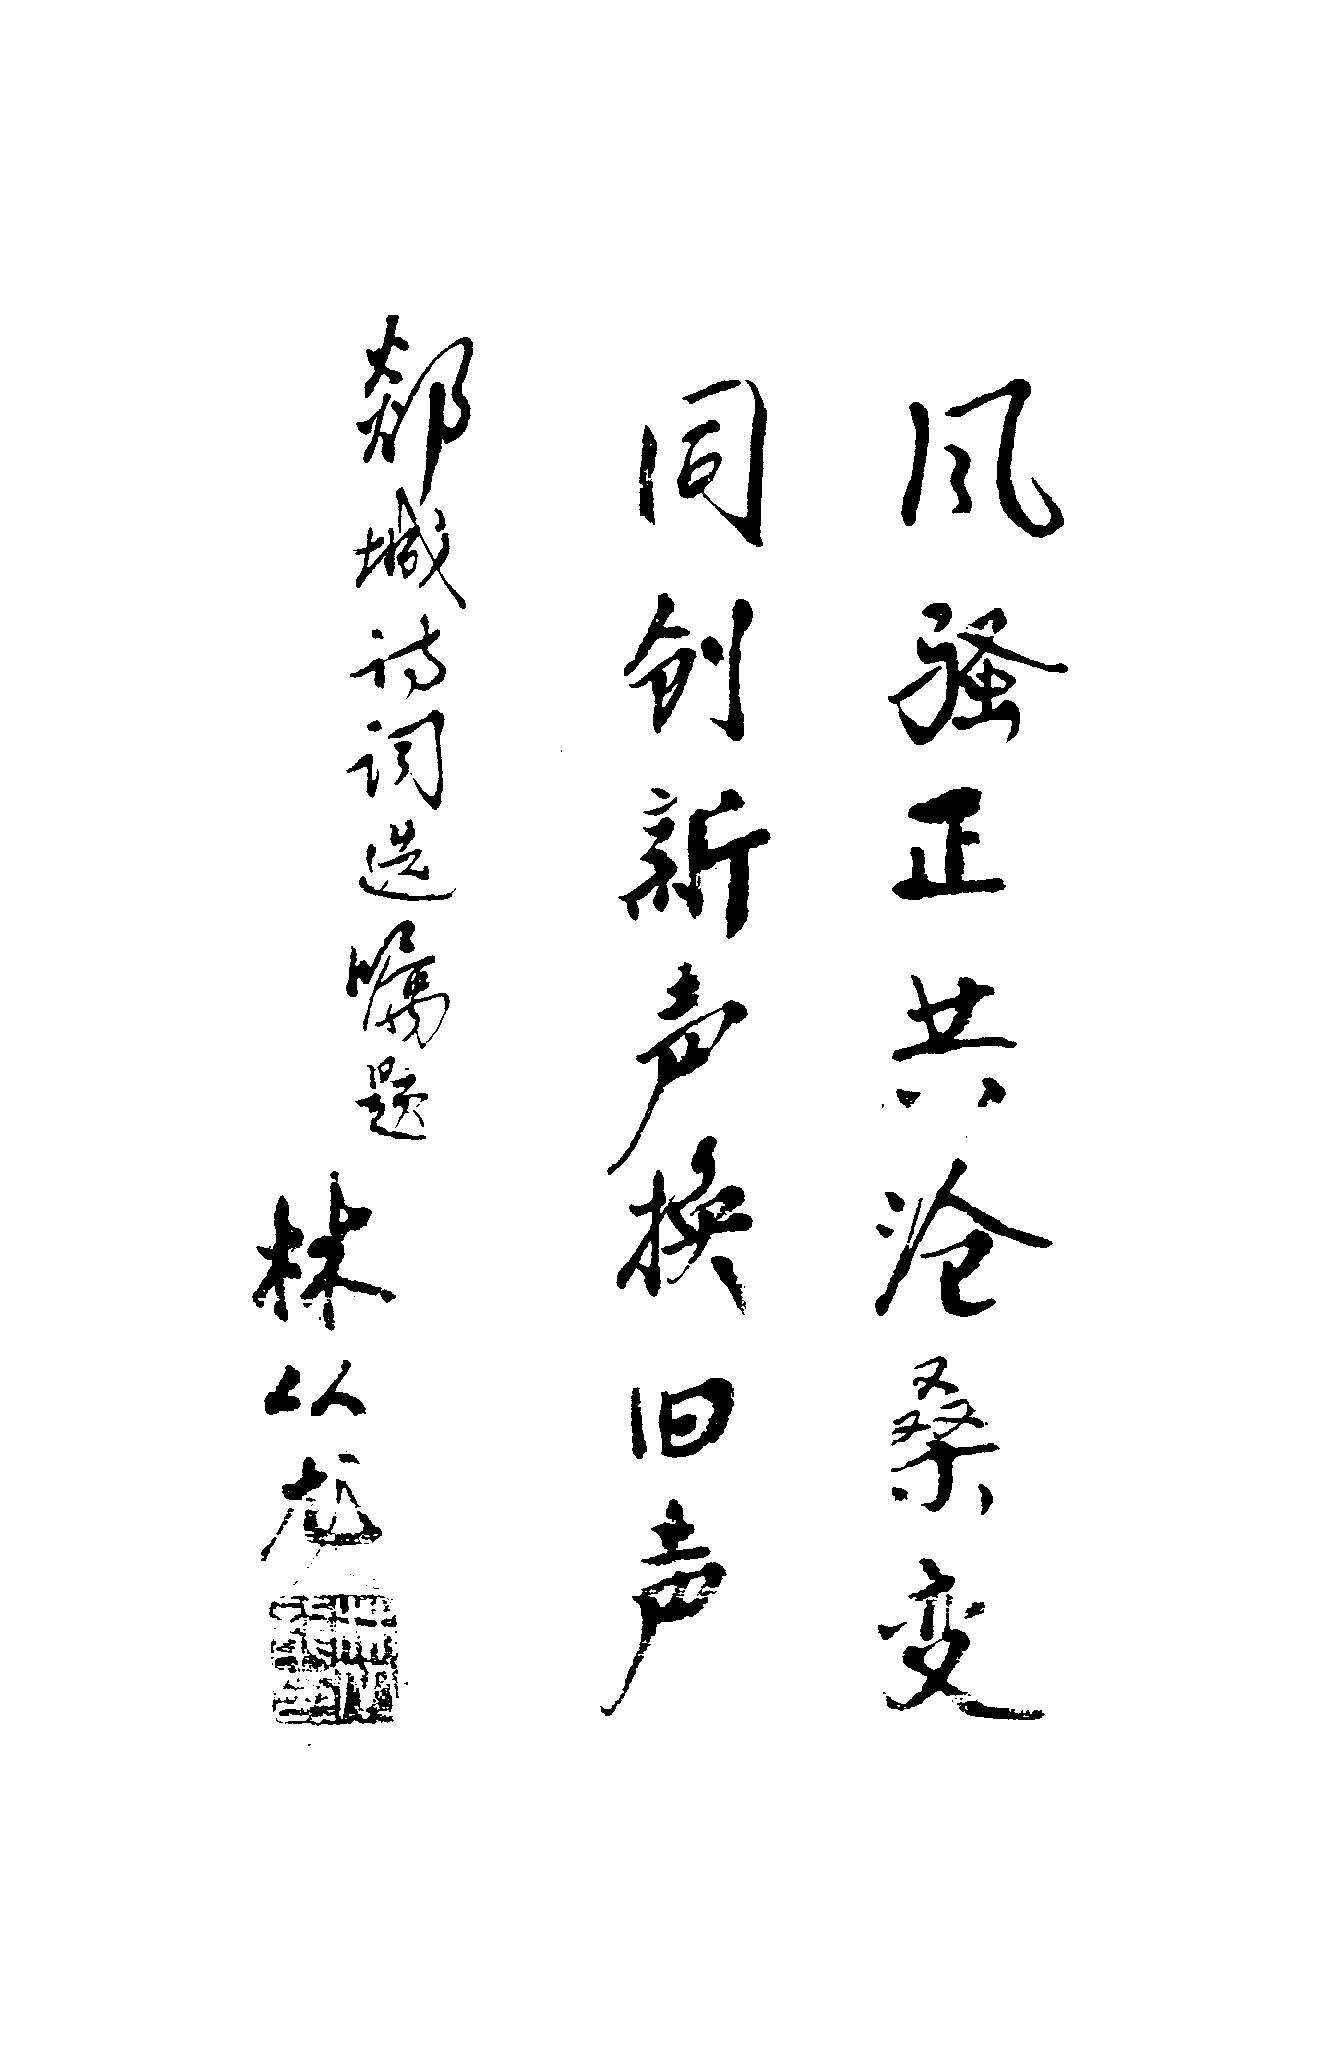 风骚正共沧桑变
同创新声换旧声
郯城诗词选嘱题
林从龙